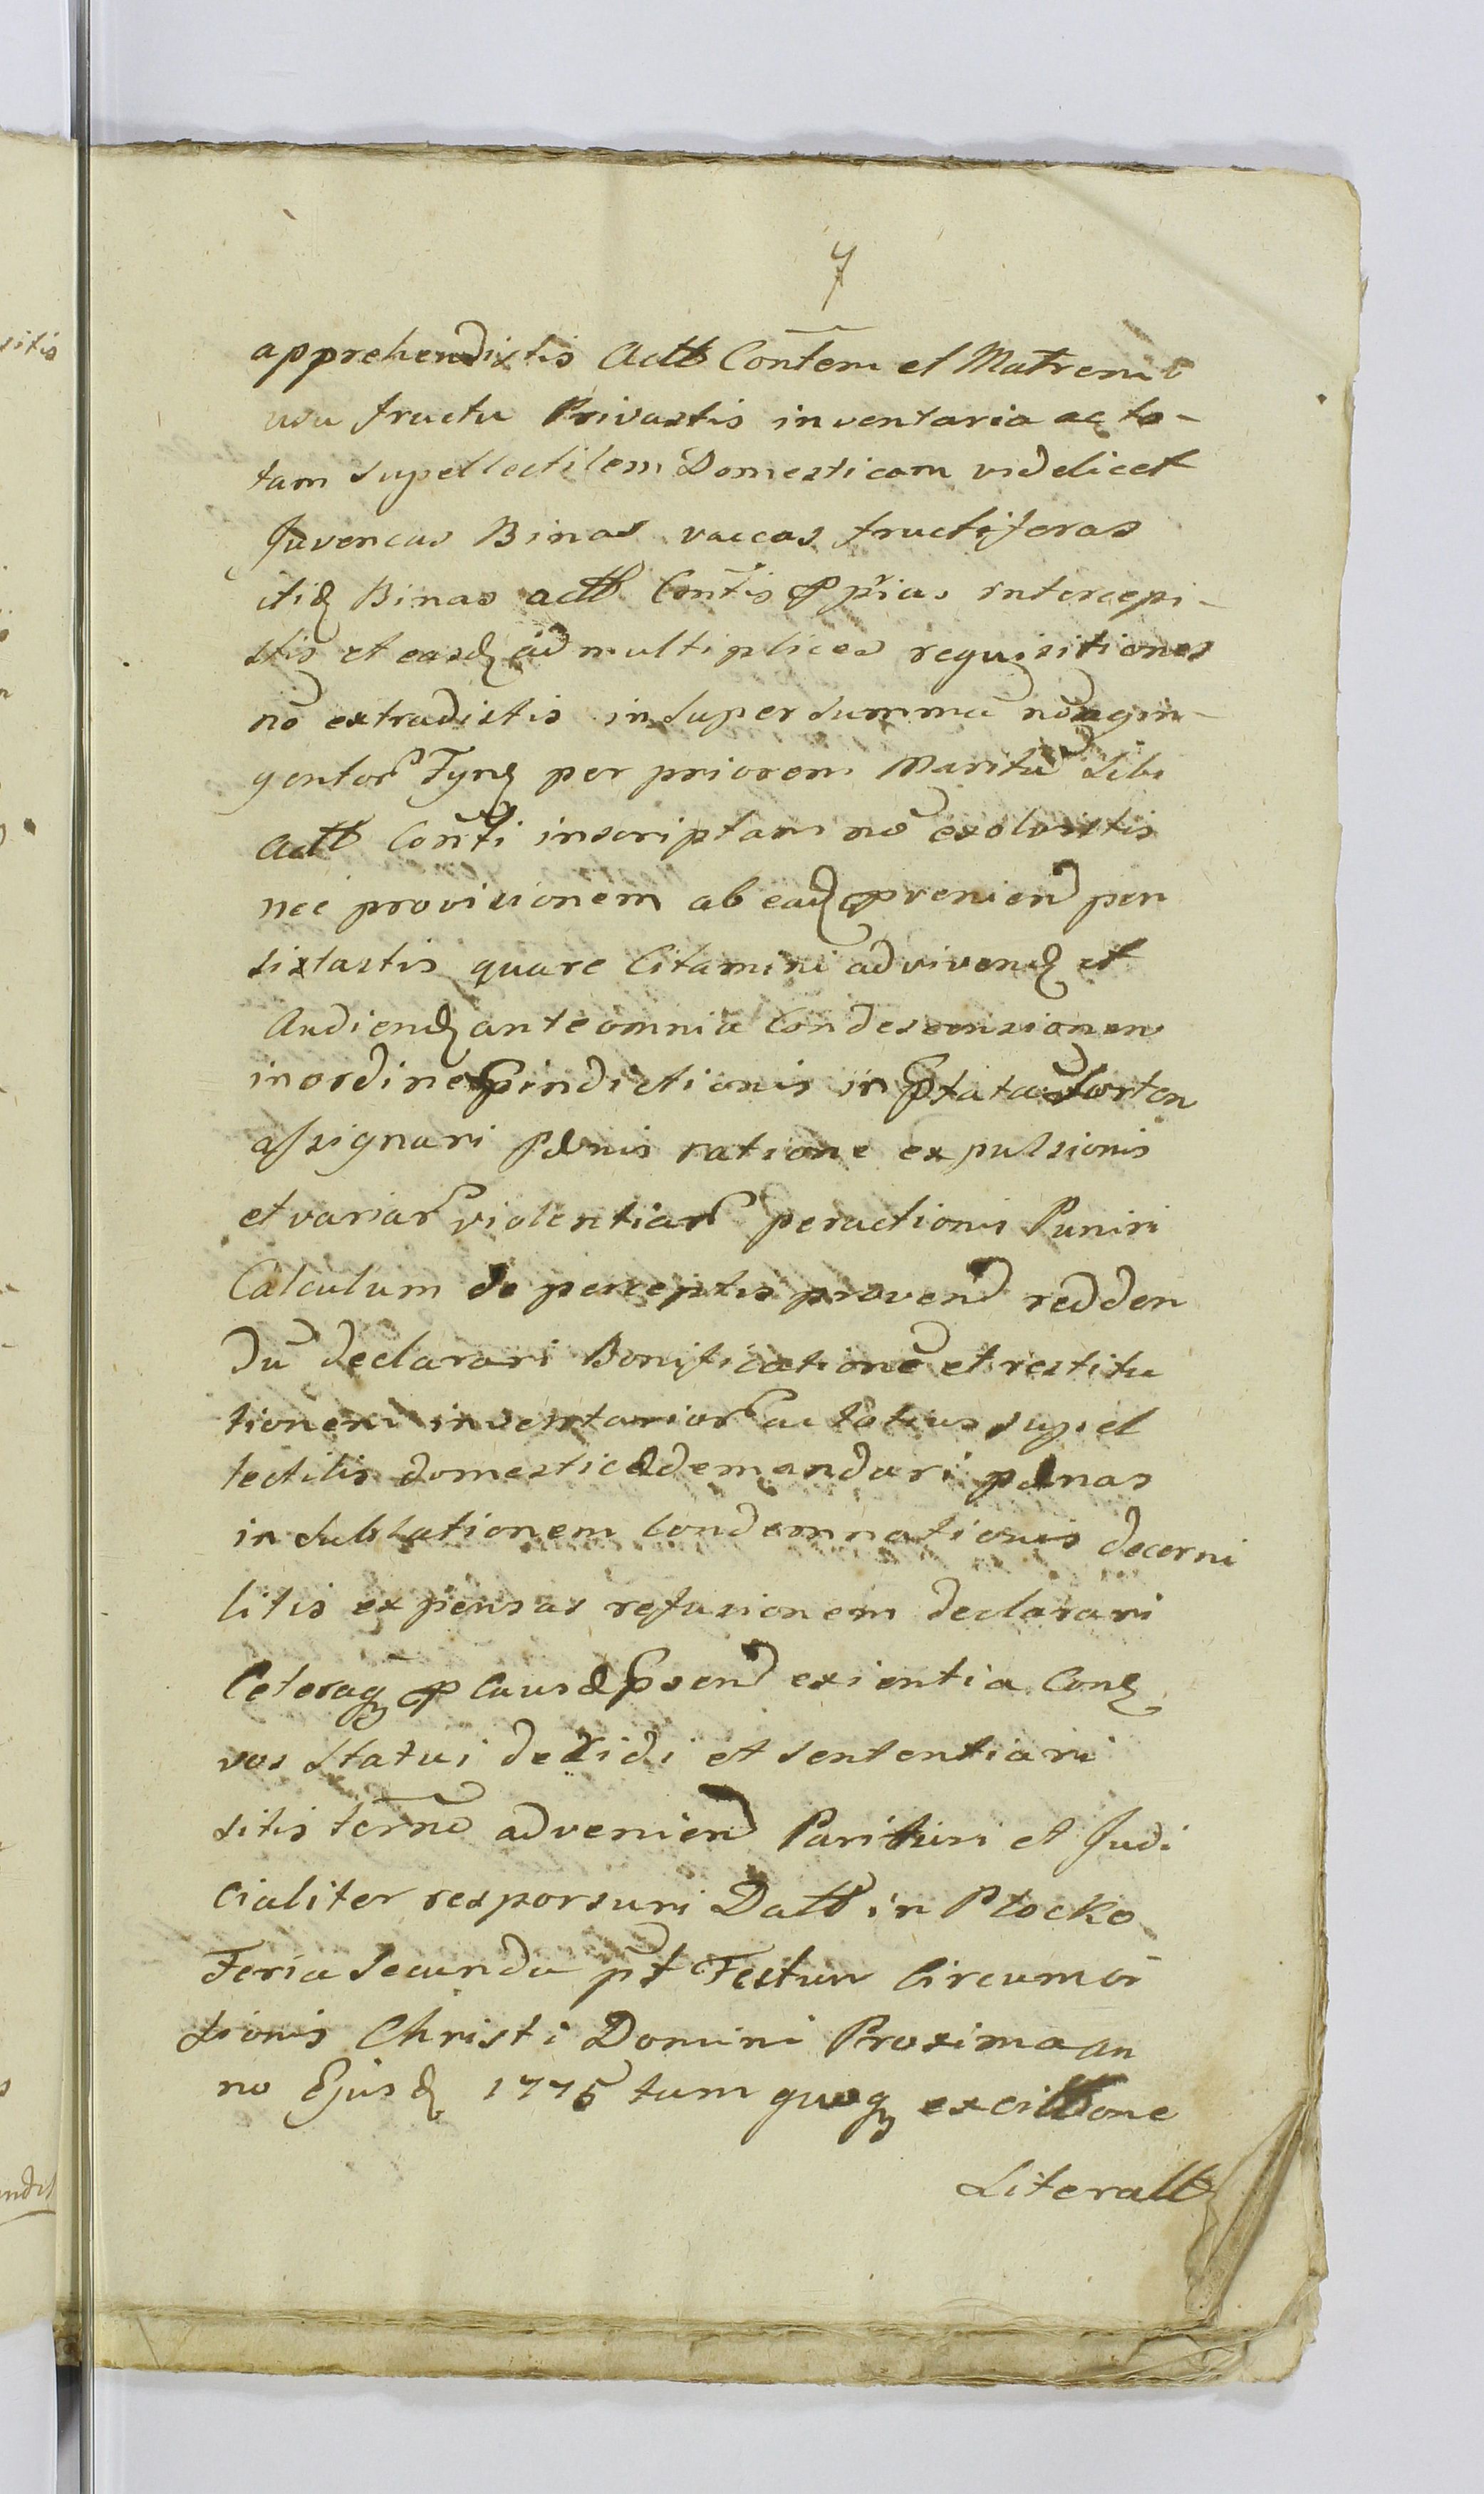 7
apprehendistis Actt Contem et Matrem
usu fructu Privastis inventaria ac to-
tam supellectilem Domesticam videlicet
Juvencas Binas vaccas fructiferas
itid Binas actt Contis pprias intercepi-
stis et easd ad multiplices requisitiones
nō extradistis insuper summā nongin-
gentor Tynf per priorem Maritū sibi
Actt Conti inscriptam nō exolvistis
nec provisionem ab ead pvenien pen
sistastis quare Citamini ad vivend et
Audiend ante omnia Condescensionem
in ordine pindictionis in ptata sorten
assignari Pænis ratione expulsionis
et variar violentiar peractionis Puniri
Calculum de perceptis proven redden
dū declarari Bonificationē et restitu
tionem inventarior ac totius supel
lectilis domesticæ demandari pænas
in sublationem Condemnationis decerni
litis expensas refusionem declarari
Ceteraq p Causæ psen exientia Cong
vos statui decidi et sententiari
sitis ternō advenien Parituri et Judi
cialiter responsuri Datt in Płocko
Feria Secunda pt Festum Circumci
sionis Christi Domini Proxima an
no Ejusd 1775 tum quoq ex cittone
Literatt
sitis